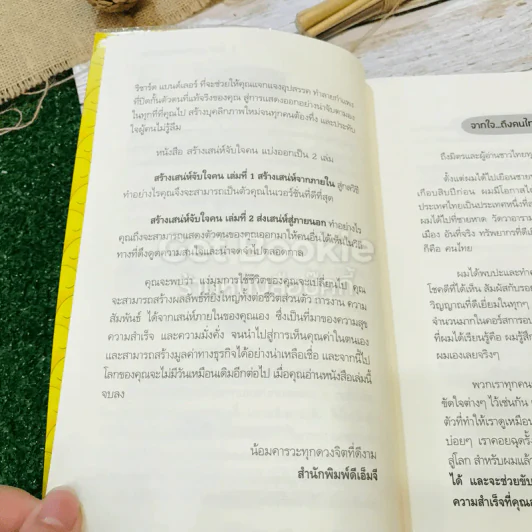 ริชาร์ด แบนด์เลอร์ ที่จะช่วยให้คุณแจกแจงอุปสรรค ทำลายกำแพง
ที่ปิดกั้นตัวตนที่แท้จริงของคุณ สู่การแสดงออกอย่างน่าจับตามอง
ในทุกที่ที่คุณไป สร้างบุคลิกภาพใหม่จนทุกคนต้องทึ่ง และประทับ
ใจผู้คนไม่รู้ลืม
หนังสือ สร้างเสน่ห์จับใจคน แบ่งออกเป็น 2 เล่ม
สร้างเสน่ห์จับใจคน เล่มที่ 1 สร้างเสน่ห์จากภายใน สู่กลวิธี
ทำอย่างไรคุณจึงจะสามารถเป็นตัวคุณในเวอร์ชันที่ดีที่สุด
สร้างเสน่ห์จับใจคน เล่มที่ 2 ส่งเสน่ห์สู่ภายนอก ทำอย่างไร
คุณถึงจะสามารถแสดงตัวตนของคุณออกมาให้คนอื่นได้เห็นในวิถี
ทางที่ดึงดูดความสนใจและน่าจดจำไปตลอดกาล
คุณจะพบว่า แง่มุมการใช้ชีวิตของคุณจะเปลี่ยนไป คุณ
จะสามารถสร้างผลลัพธ์ที่ยิ่งใหญ่ทั้งต่อชีวิตส่วนตัว การงาน ความ
สัมพันธ์ ได้จากเสน่ห์ภายในของคุณเอง ซึ่งเป็นที่มาของความสุข
ความสำเร็จ และความมั่งคั่ง จนนำไปสู่การเห็นคุณค่าในตนเอง
และสามารถสร้างมูลค่าทางธุรกิจได้อย่างน่าเหลือเชื่อ และจากนี้ไป
โลกของคุณจะไม่มีวันเหมือนเดิมอีกต่อไป เมื่อคุณอ่านหนังสือเล่มนี้
จบลง
น้อมคารวะทุกดวงจิตที่ดีงาม
สำนักพิมพ์ดีเอ็มจี
จากใจ...ถึงคนไท
ถึงมิตรและผู้อ่านชาวไทยทุ
ตั้งแต่ผมได้ไปเยือนชาย
เกือบสิบปีก่อน ผมมีโอกาสไ
ประเทศไทยเป็นประเทศหนึ่งที่
ผมได้ไปที่ชายหาด วัดวาอาราม
เมือง อันที่จริง ทรัพยากรที่ดี
ก็คือ คนไทย
ผมได้พบปะและทำค
โชคดีที่ได้เห็น สัมผัสกับรอย
วิญญาณที่ดีเยี่ยมในทุกๆ
จำนวนมากในคอร์สการอบ
ที่ผมได้เรียนรู้คือ ผมรู้สึก
ผมเองเลยจริงๆ
พวกเราทุกคน
ขัดใจต่างๆ ไว้เช่นกัน
ตัวที่ทำให้เราดูเหมือน
บ่อยๆ เราคอยฉุดรั้ง
สู่โลก สำหรับผมแล้ว
ได้ และจะช่วยขับ
ความสำเร็จที่คุณ